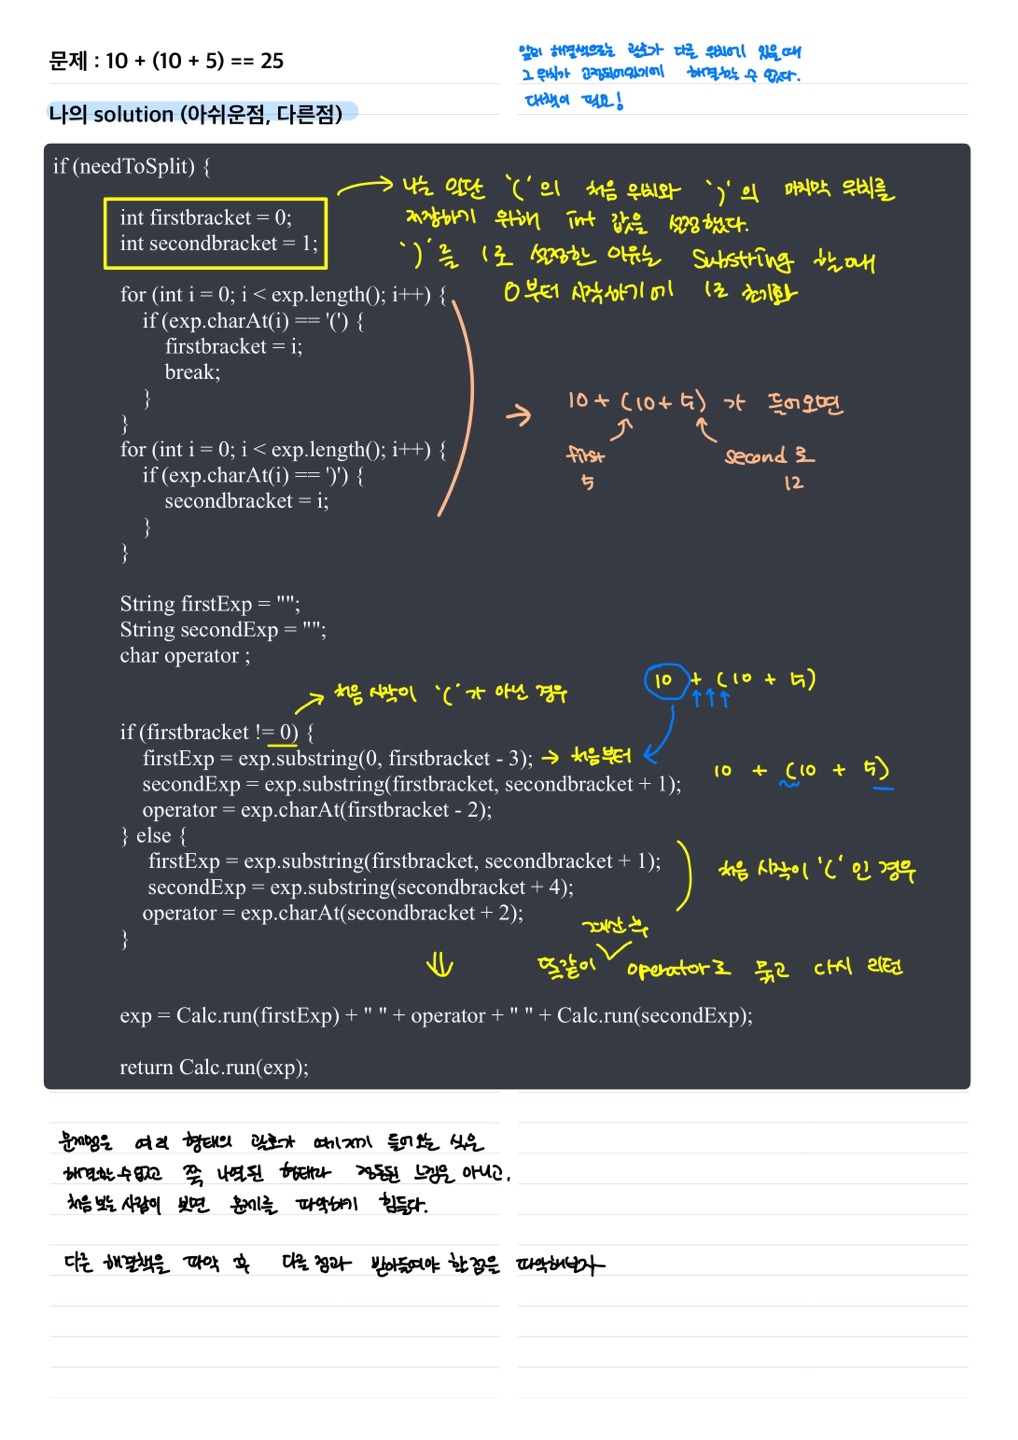 문제 : 10 + (10 + 5) == 25
앞의 해결책으로는 괄호가 다른 위치에 있을때
그 위치가 고정되어있기에 해결할 수 없다.
대책이 필요!
나의 solution (아쉬운점, 다른점)
if (needToSplit) {
int firstbracket = 0;
int secondbracket = 1;
나는 일단 '(' 의 처음 위치와 ')' 의 마지막 위치를
저장하기 위해 int 값을 설정했다.
')' 를 1로 설정한 이유는 Substring 할때
0부터 시작하기에 1로 초기화
for (int i = 0; i < exp.length(); i++) {
if (exp.charAt(i) == '(') {
firstbracket = i;
break;
}
}
for (int i = 0; i < exp.length(); i++) {
if (exp.charAt(i) == ')') {
secondbracket = i;
}
}
→ 10 + (10 + 5) 가 들어오면
first
5
second 로
12
String firstExp = "";
String secondExp = "";
char operator ;
→ 처음 시작이 '(' 가 아닌 경우
10 + (10 + 5)
if (firstbracket != 0) {
firstExp = exp.substring(0, firstbracket - 3); → 처음부터
secondExp = exp.substring(firstbracket, secondbracket + 1);
10 + (10 + 5)
operator = exp.charAt(firstbracket - 2);
} else {
firstExp = exp.substring(firstbracket, secondbracket + 1);
secondExp = exp.substring(secondbracket + 4);
operator = exp.charAt(secondbracket + 2);
}
처음 시작이 '(' 인 경우
계산 후
똑같이 operator로 묶고 다시 리턴
exp = Calc.run(firstExp) + " " + operator + " " + Calc.run(secondExp);
return Calc.run(exp);
문제점은 여러 형태의 괄호가 여기저기 들어오는 식은
해결할 수 없고 쭉 나열된 형태라 정돈된 느낌은 아니고,
처음 보는 사람이 보면 문제를 파악하기 힘들다.
다른 해결책을 파악 후 다른 점과 받아들여야 할 점을 파악해보자